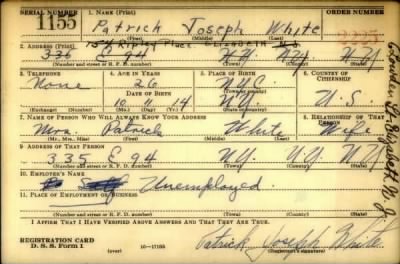 SERIAL NUMBER 1. NAME (Print) ORDER NUMBER
1155 Patrick Joseph Whyte
(First) (Middle) (Last)
2. ADDRESS (Print)
336 E 94 N.Y. N.Y. N.Y.
(Number and street or R. F. D. number) (Town) (County) (State)
3. TELEPHONE 4. AGE IN YEARS 5. PLACE OF BIRTH 6. COUNTRY OF CITIZENSHIP
None 26 N.Y.C.
DATE OF BIRTH
10 11 14 N.Y. U.S.
(Exchange) (Number) (Mo.) (Day) (Yr.) (Town) (County) (State)
7. NAME OF PERSON WHO WILL ALWAYS KNOW YOUR ADDRESS 8. RELATIONSHIP OF THAT PERSON
Mrs. Patrick White Wife
(Mr., Mrs., Miss) (First) (Middle) (Last)
9. ADDRESS OF THAT PERSON
335 E 94 N.Y. N.Y. N.Y.
(Number and street or R. F. D. number) (Town) (County) (State)
10. EMPLOYER'S NAME
Unemployed.
11. PLACE OF EMPLOYMENT OR BUSINESS
(Number and street or R. F. D. number) (Town) (County) (State)
I AFFIRM THAT I HAVE VERIFIED ABOVE ANSWERS AND THAT THEY ARE TRUE.
REGISTRATION CARD
D. S. S. Form 1 (over) 16—17105 Patrick Joseph White
(Registrant's signature)